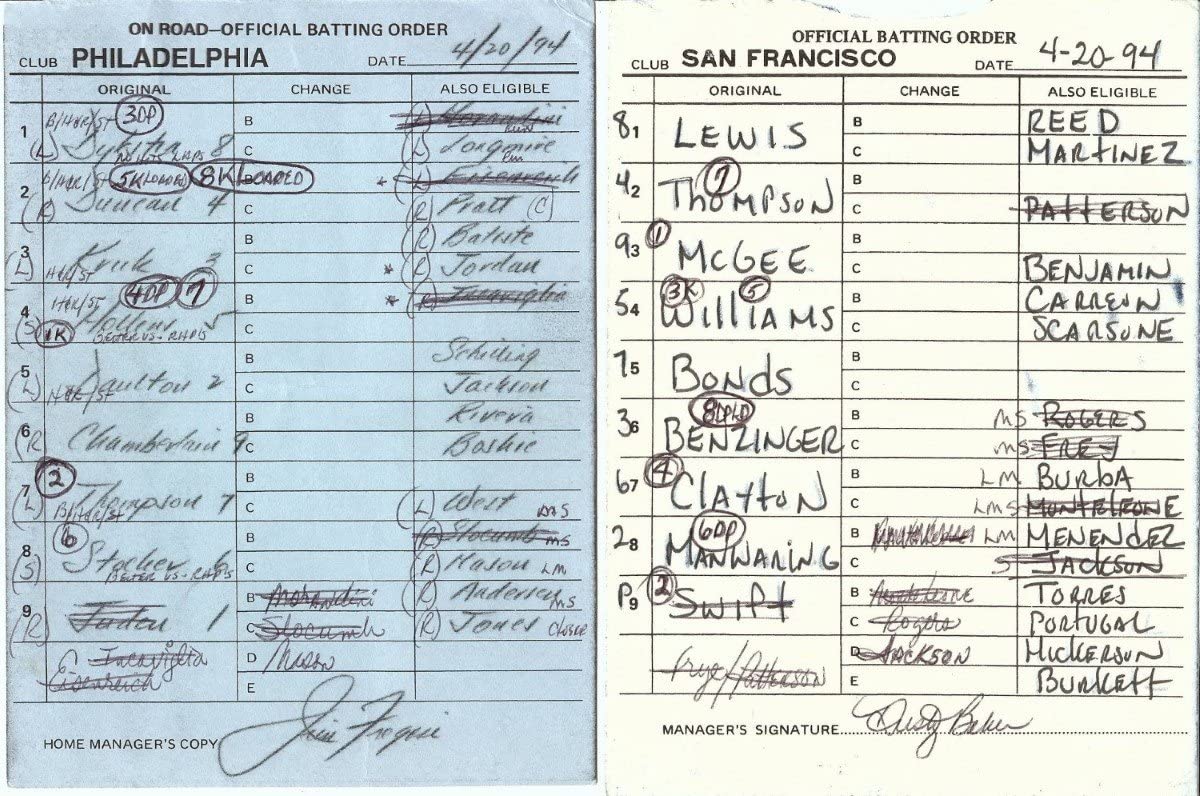 ON ROAD—OFFICIAL BATTING ORDER
CLUB PHILADELPHIA DATE 4/20/94
ORIGINAL CHANGE ALSO ELIGIBLE
1 B/H&R/ST 3DP B (L) Morandini
(L) Dykstra 8 C (L) Longmire
2 B/H&R/ST 5K LOADED 8K LOADED B * (L) Eisenreich
(R) Duncan 4 C (R) Pratt (C)
3 B (R) Batiste
(L) Kruk 3 H&R/ST C * (L) Jordan
4 H&R/ST 4DP 7 B * (R) Incaviglia
(S) 1K Hollins 5 BETTER VS. RHPS C
5 B Schilling
(L) Daulton 2 H&R/ST C Jackson
6 B Rivera
(R) Chamberlain 9 C Boskie
7 2 B
(L) Thompson 7 B/H&R/ST C (L) West LMS
8 6 B (R) Slocumb MS
(S) Stocker 6 BETTER VS. RHPS C (R) Mason LM
9 B Morandini (R) Andersen MS
(R) 1 C Slocumb (R) Jones CLOSER
Incaviglia D Mason
Eisenreich E
HOME MANAGER'S COPY Jim Fregosi
OFFICIAL BATTING ORDER
CLUB SAN FRANCISCO DATE 4-20-94
ORIGINAL CHANGE ALSO ELIGIBLE
8 1 LEWIS B REED
C MARTINEZ
4 2 THOMPSON 7 B
C PATTERSON
9 3 1 McGEE B
C BENJAMIN
5 4 3K 5 WILLIAMS B CARREON
C SCARSONE
7 5 BONDS B
C
3 6 8DPLD BENZINGER B MS ROGERS
C MS FREY
6 7 4 CLAYTON B LM BURBA
C LMS MONTELEONE
2 8 6DP MANWARING B LM MENENDEZ
C S JACKSON
P 9 2 SWIFT B Monteleone TORRES
C Rogers PORTUGAL
Frey/Patterson D JACKSON HICKERSON
E BURKETT
MANAGER'S SIGNATURE Dusty Baker